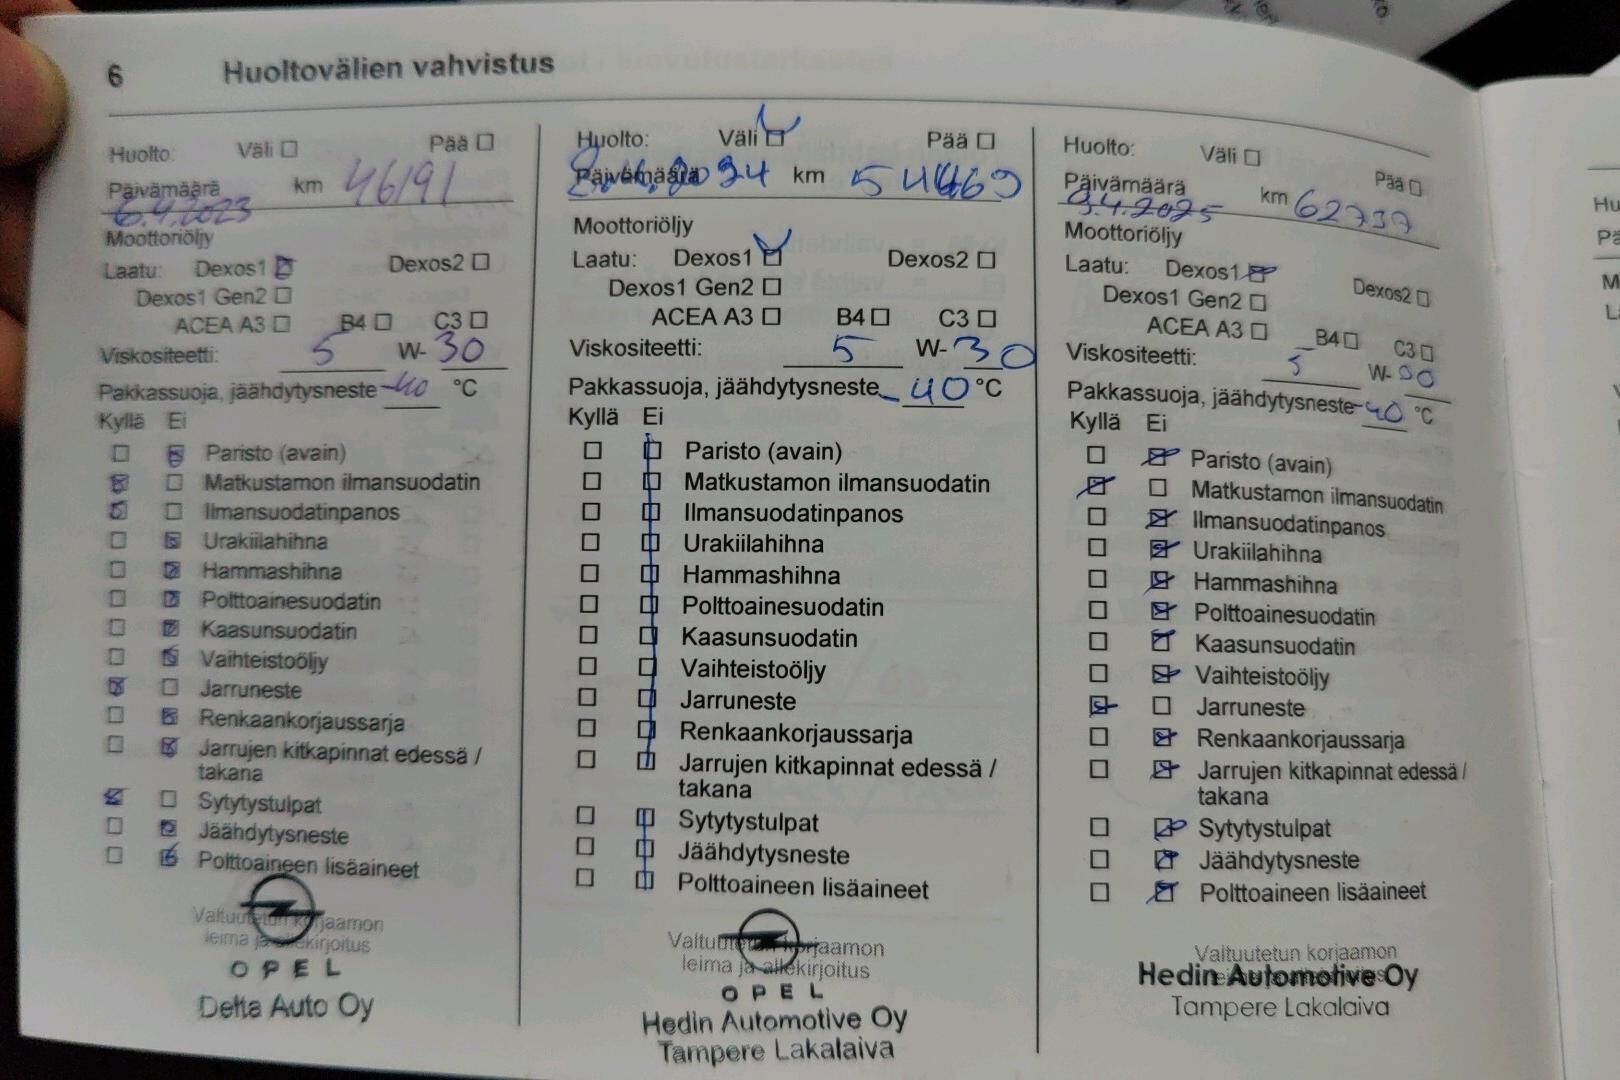 6 Huoltovälien vahvistus
Huolto: Väli Pää
Päivämäärä km 46191
6.4.2023
Moottoriöljy
Laatu: Dexos1 Dexos2
Dexos1 Gen2
ACEA A3 B4 C3
Viskositeetti: 5 W- 30
Pakkassuoja, jäähdytysneste -40 °C
Kyllä Ei
Paristo (avain)
Matkustamon ilmansuodatin
Ilmansuodatinpanos
Urakiilahihna
Hammashihna
Polttoainesuodatin
Kaasunsuodatin
Vaihteistoöljy
Jarruneste
Renkaankorjaussarja
Jarrujen kitkapinnat edessä /
takana
Sytytystulpat
Jäähdytysneste
Polttoaineen lisäaineet
Valtuutetun korjaamon
leima ja allekirjoitus
OPEL
Delta Auto Oy
Huolto: Väli Pää
Päivämäärä km
Moottoriöljy
Laatu: Dexos1 Dexos2
Dexos1 Gen2
ACEA A3 B4 C3
Viskositeetti: 5 W- 30
Pakkassuoja, jäähdytysneste -40 °C
Kyllä Ei
Paristo (avain)
Matkustamon ilmansuodatin
Ilmansuodatinpanos
Urakiilahihna
Hammashihna
Polttoainesuodatin
Kaasunsuodatin
Vaihteistoöljy
Jarruneste
Renkaankorjaussarja
Jarrujen kitkapinnat edessä /
takana
Sytytystulpat
Jäähdytysneste
Polttoaineen lisäaineet
Valtuutetun korjaamon
leima ja allekirjoitus
OPEL
Hedin Automotive Oy
Tampere Lakalaiva
Huolto: Väli Pää
Päivämäärä km 62737
9.4.2025
Moottoriöljy
Laatu: Dexos1 Dexos2
Dexos1 Gen2
ACEA A3 B4 C3
Viskositeetti: 5 W-
Pakkassuoja, jäähdytysneste -40 °C
Kyllä Ei
Paristo (avain)
Matkustamon ilmansuodatin
Ilmansuodatinpanos
Urakiilahihna
Hammashihna
Polttoainesuodatin
Kaasunsuodatin
Vaihteistoöljy
Jarruneste
Renkaankorjaussarja
Jarrujen kitkapinnat edessä /
takana
Sytytystulpat
Jäähdytysneste
Polttoaineen lisäaineet
Valtuutetun korjaamon
Hedin Automotive Oy
Tampere Lakalaiva